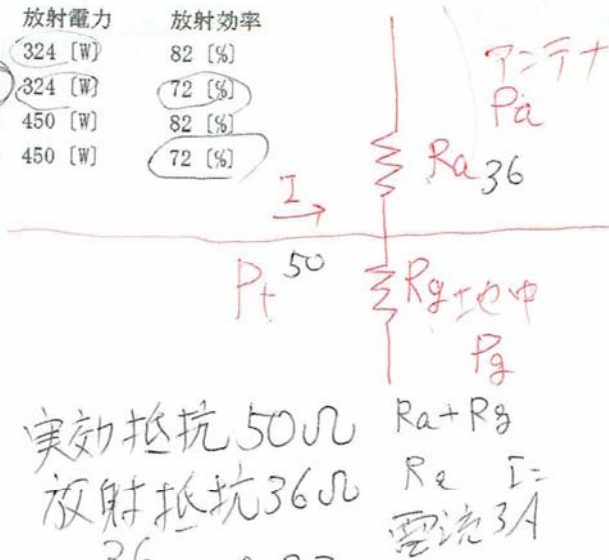 放射電力 放射効率
324 [W] 82 [%]
324 [W] 72 [%]
450 [W] 82 [%]
450 [W] 72 [%]
アンテナ
Pa
Ra 36
I
Pt 50
Rg 地中
Pg
実効抵抗 50Ω Ra+Rg
放射抵抗 36Ω I=
電流 3A
36